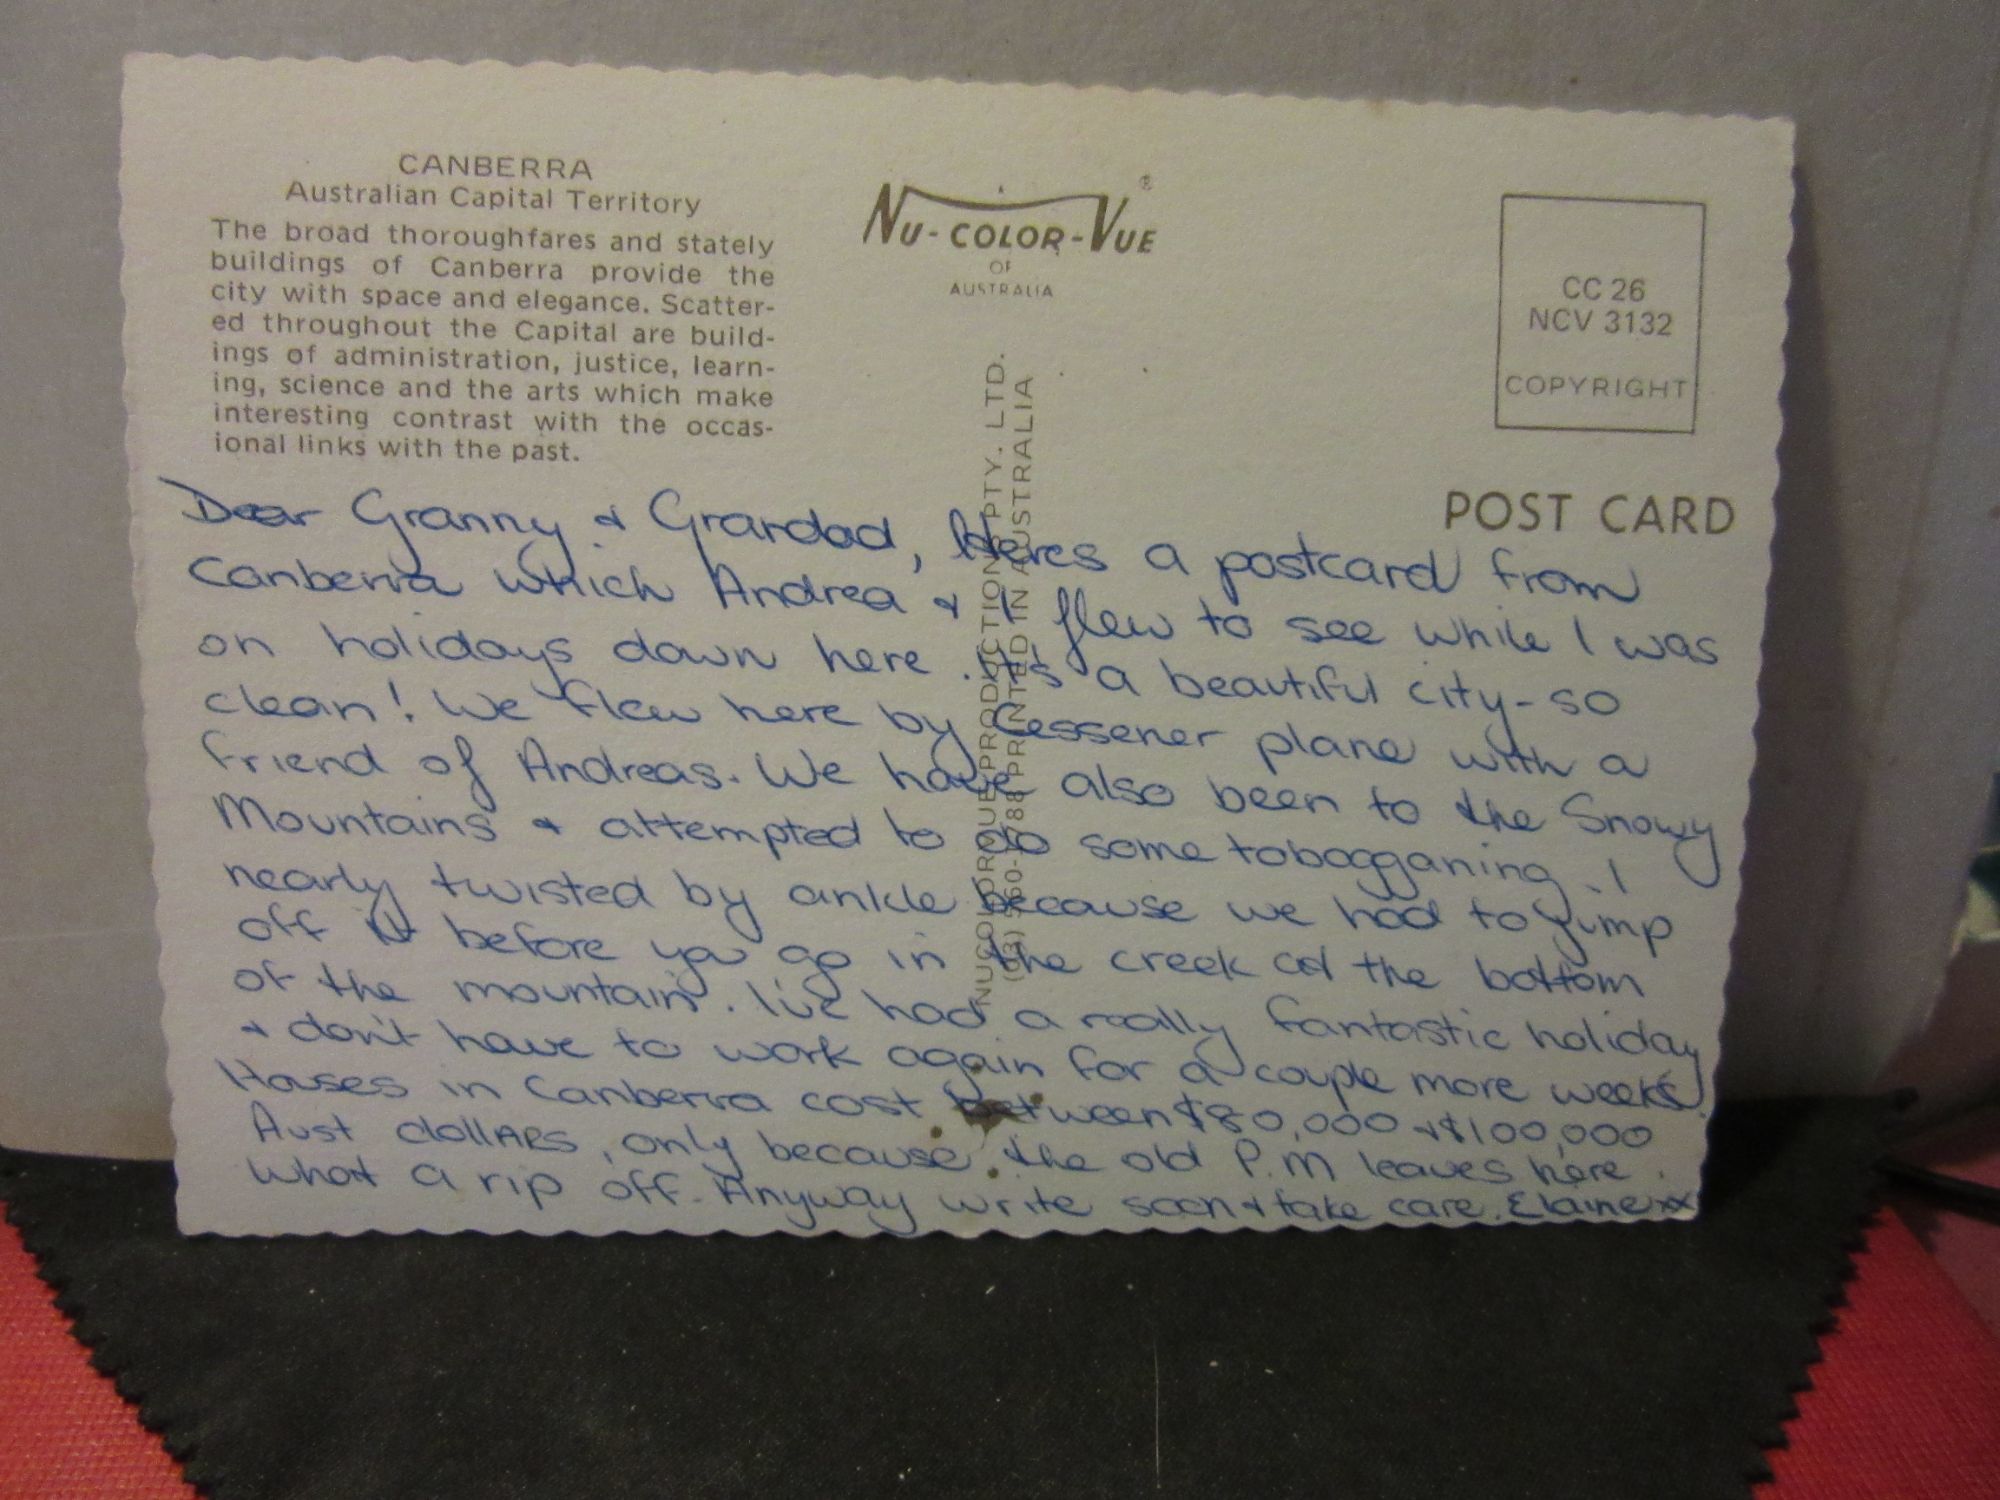 CANBERRA
Australian Capital Territory
The broad thoroughfares and stately
buildings of Canberra provide the
city with space and elegance. Scatter-
ed throughout the Capital are build-
ings of administration, justice, learn-
ing, science and the arts which make
interesting contrast with the occas-
ional links with the past.
NU-COLOR-VUE ®
OF
AUSTRALIA
CC 26
NCV 3132
COPYRIGHT
POST CARD
PTY. LTD.
PRINTED IN AUSTRALIA
Dear Granny & Grandad, Heres a postcard from
Canberra which Andrea & I flew to see while I was
on holidays down here. It's a beautiful city - so
clean! We flew here by Cessener plane with a
friend of Andreas. We have also been to the Snowy
Mountains & attempted to do some tobogganing. I
nearly twisted by ankle because we had to jump
off it before you go in the creek at the bottom
of the mountain. I've had a really fantastic holiday
& don't have to work again for a couple more weeks.
Houses in Canberra cost between $80,000 & $100,000
Aust dollARS, only because the old P.M leaves here.
what a rip off. Anyway write soon & take care. Elaine xx